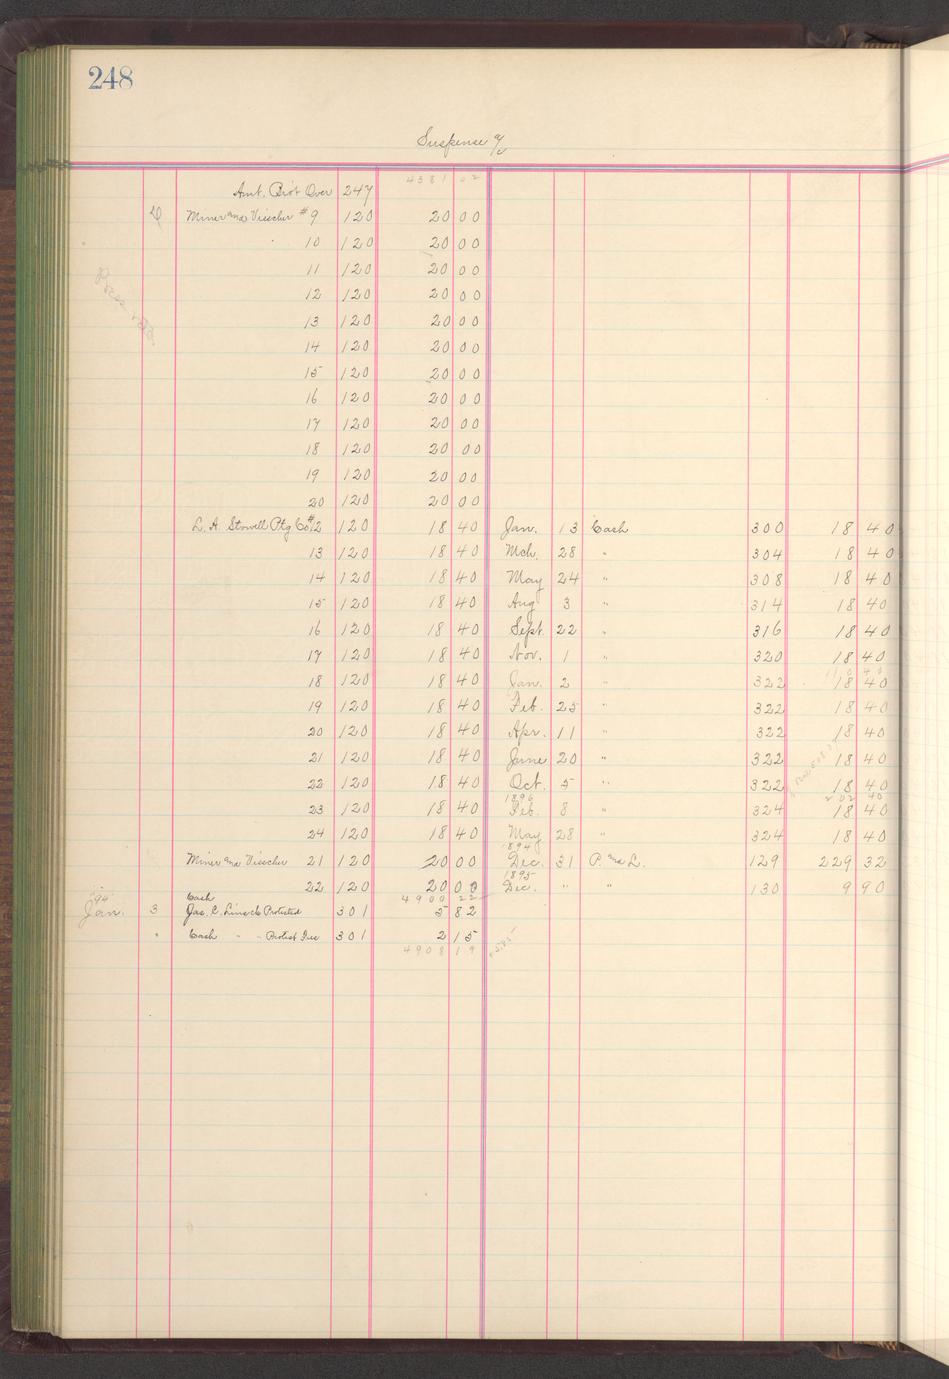 248
Suspense a/c
4381 02
Amt. Bro't Over 247
Miner and Visscher #9 120 20 00
10 120 20 00
11 120 20 00
12 120 20 00
13 120 20 00
14 120 20 00
15 120 20 00
16 120 20 00
17 120 20 00
18 120 20 00
19 120 20 00
20 120 20 00
L. A. Stowell Ptg Co #12 120 18 40 Jan. 13 Cash 300 18 40
13 120 18 40 Mch. 28 " 304 18 40
14 120 18 40 May 24 " 308 18 40
15 120 18 40 Aug 3 " 314 18 40
16 120 18 40 Sept. 22 " 316 18 40
17 120 18 40 Nov. 1 " 320 18 40
110 40
18 120 18 40 Jan. 2 " 322 18 40
19 120 18 40 Feb. 25 " 322 18 40
20 120 18 40 Apr. 11 " 322 18 40
21 120 18 40 June 20 " 322 18 40
22 120 18 40 Oct. 5 " 322 18 40
1896 202 40
23 120 18 40 Feb. 8 " 324 18 40
24 120 18 40 May 28 " 324 18 40
1894
Miner and Visscher 21 120 20 00 Dec. 31 P. and L. 129 229 32
1895
22 120 20 00 Dec. " " 130 9 90
'94 Cash 4900 22
Jan. 3 Jas. C. Protested 301 5 82
" Cash " " Protest Fees 301 2 15
4908 19